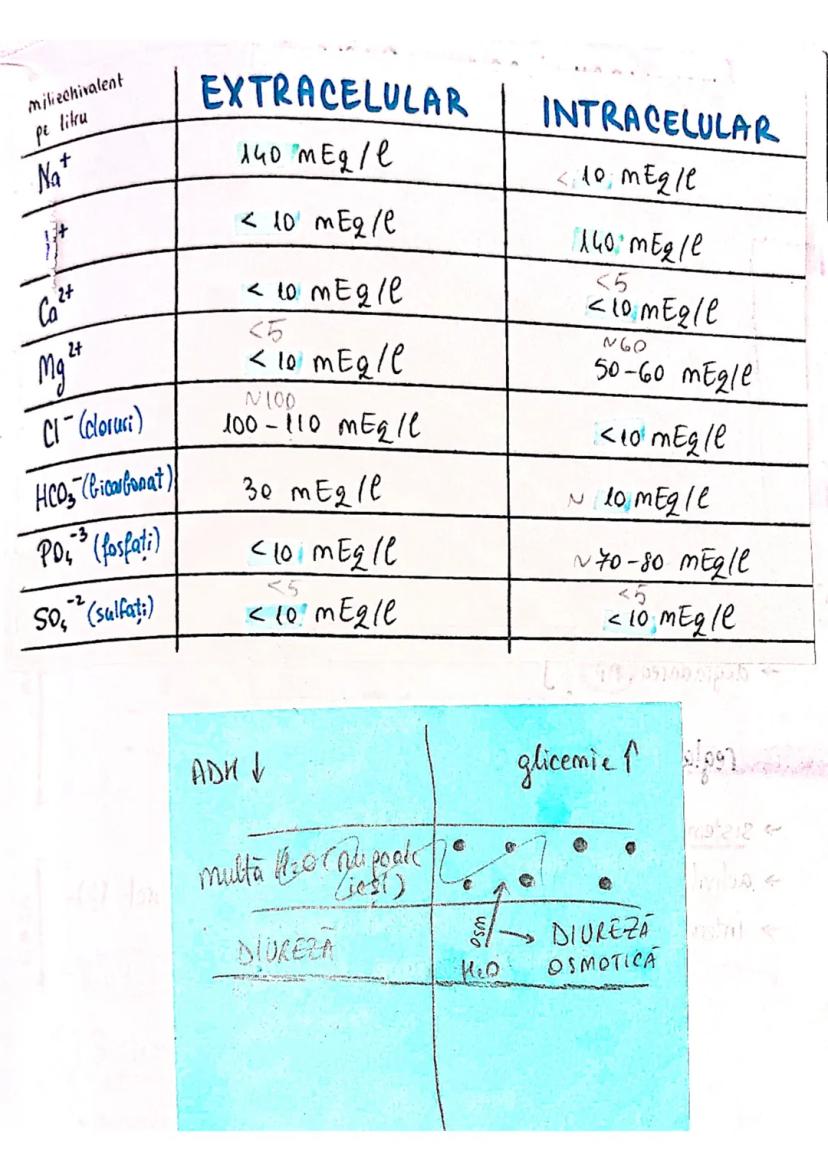 miliechivalent
pe litru
EXTRACELULAR
INTRACELULAR
Na⁺
140 mEq/l
< 10 mEq/l
⁺
< 10 mEq/l
140 mEq/l
Ca²⁺
< 10 mEq/l
<5
<10 mEq/l
Mg²⁺
<5
< 10 mEq/l
~60
50-60 mEq/l
Cl⁻ (cloruri)
~100
100-110 mEq/l
<10 mEq/l
HCO₃⁻ (bicarbonat)
30 mEq/l
~ 10 mEq/l
PO₄⁻³ (fosfați)
<10 mEq/l
~70-80 mEq/l
SO₄⁻² (sulfați)
<5
<10 mEq/l
<5
<10 mEq/l
ADH ↓
glicemie ↑
multă H₂O (nu poate
ieși)
DIUREZĂ
osm
→ DIUREZĂ
H₂O
OSMOTICĂ